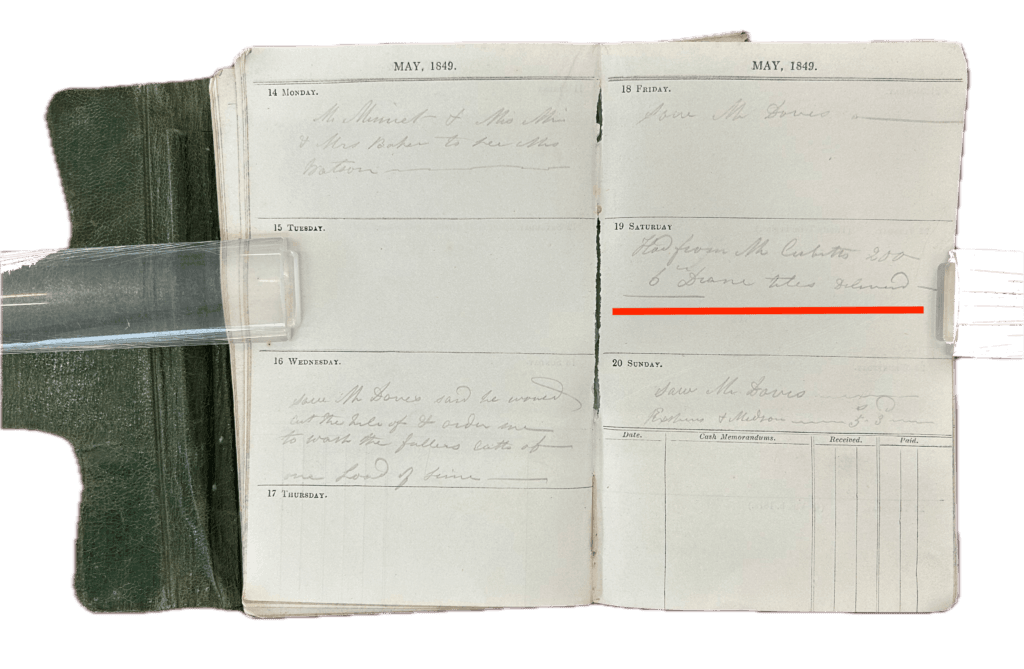 MAY, 1849.
14 MONDAY.
Mr Minnet & Mrs Mi
& Mrs Baker to see Mrs
Watson
15 TUESDAY.
16 WEDNESDAY.
saw Mr Davis said he would
cut the off & order me
to wash the fullers carts of
one Load of lime
17 THURSDAY.
MAY, 1849.
18 FRIDAY.
Saw Mr Davis
19 SATURDAY
Had from Mr Cubitts 200
6 Drane tiles Deliverd
20 SUNDAY.
Saw Mr Davis
& Medson 5 3
Date. Cash Memorandums. Received. Paid.